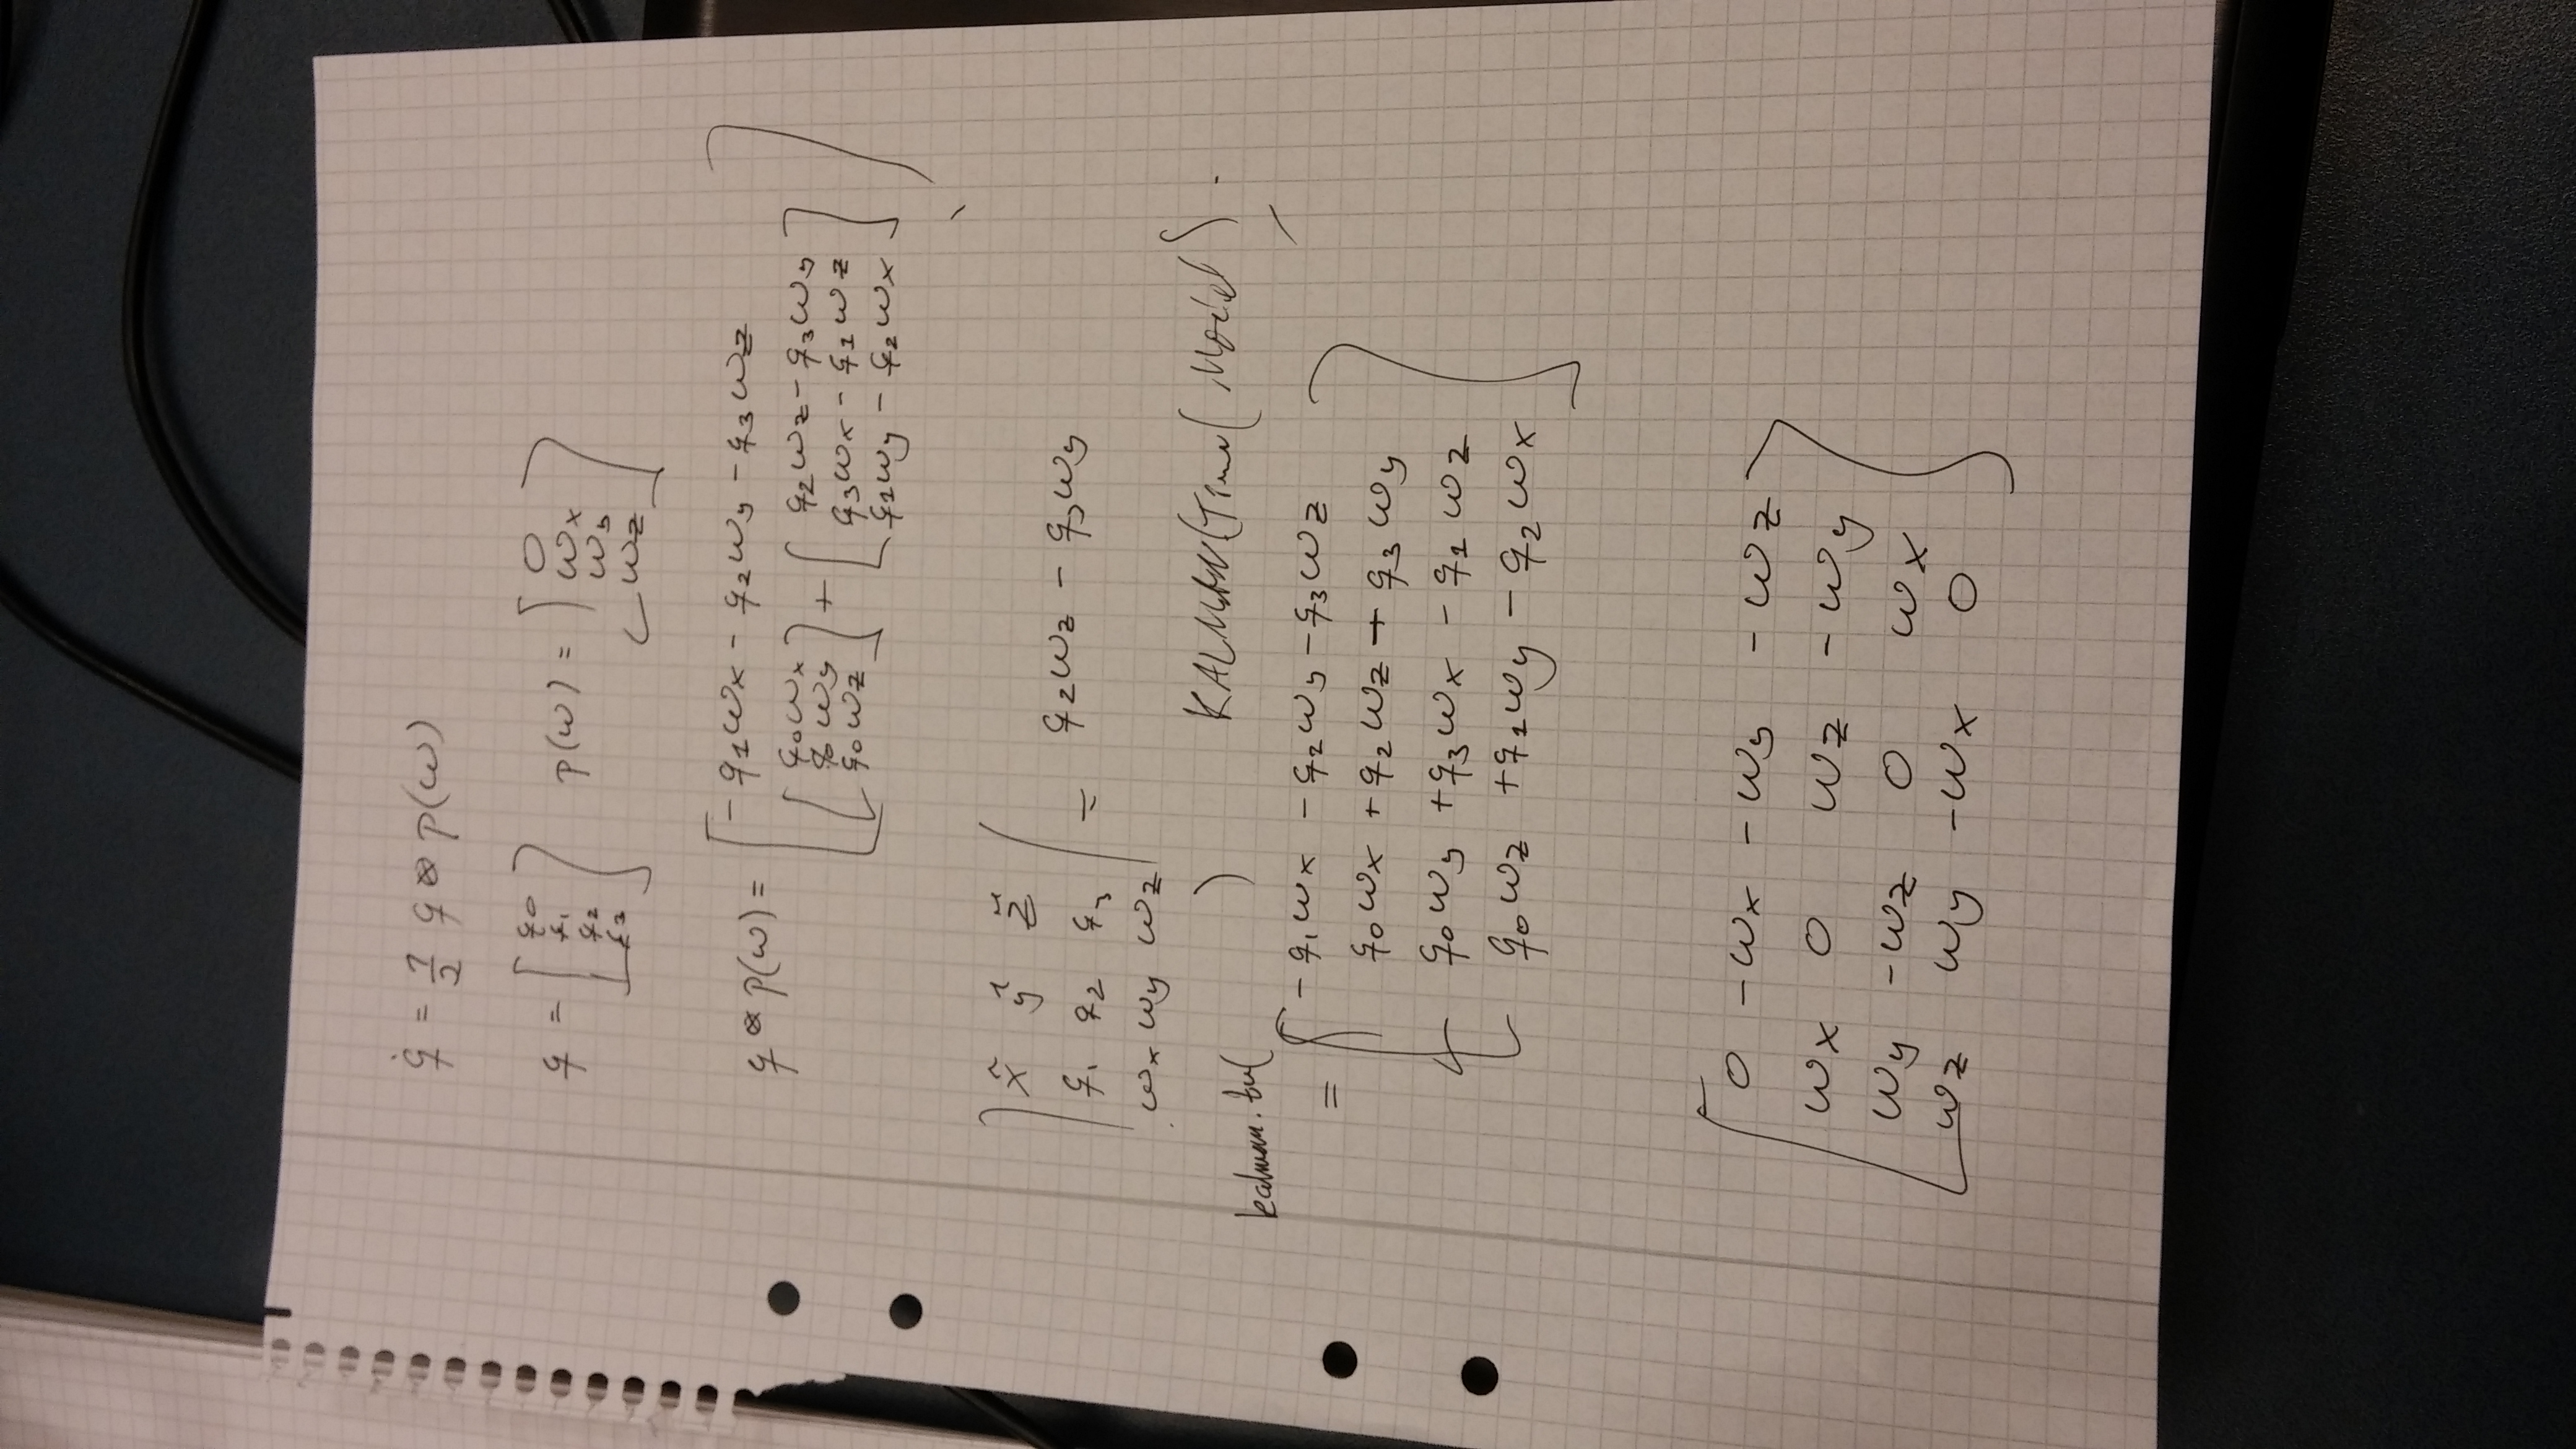 q̇ = 1/2 q ⊗ p(ω)
q = [q0 q1 q2 q3] p(ω) = [0 ωx ωy ωz]
q ⊗ p(ω) = [-q1ωx - q2ωy - q3ωz
[q0ωx q0ωy q0ωz] + [q2ωz - q3ωy q3ωx - q1ωz q1ωy - q2ωx]]
|x̂ ŷ ẑ
q1 q2 q3
ωx ωy ωz| = q2ωz - q3ωy
KALMAN(Time(Model)).
kalman.tu( )
= [-q1ωx - q2ωy - q3ωz
q0ωx + q2ωz + q3ωy
q0ωy + q3ωx - q1ωz
q0ωz + q1ωy - q2ωx]
[0 -ωx -ωy -ωz
ωx 0 ωz -ωy
ωy -ωz 0 ωx
ωz ωy -ωx 0]